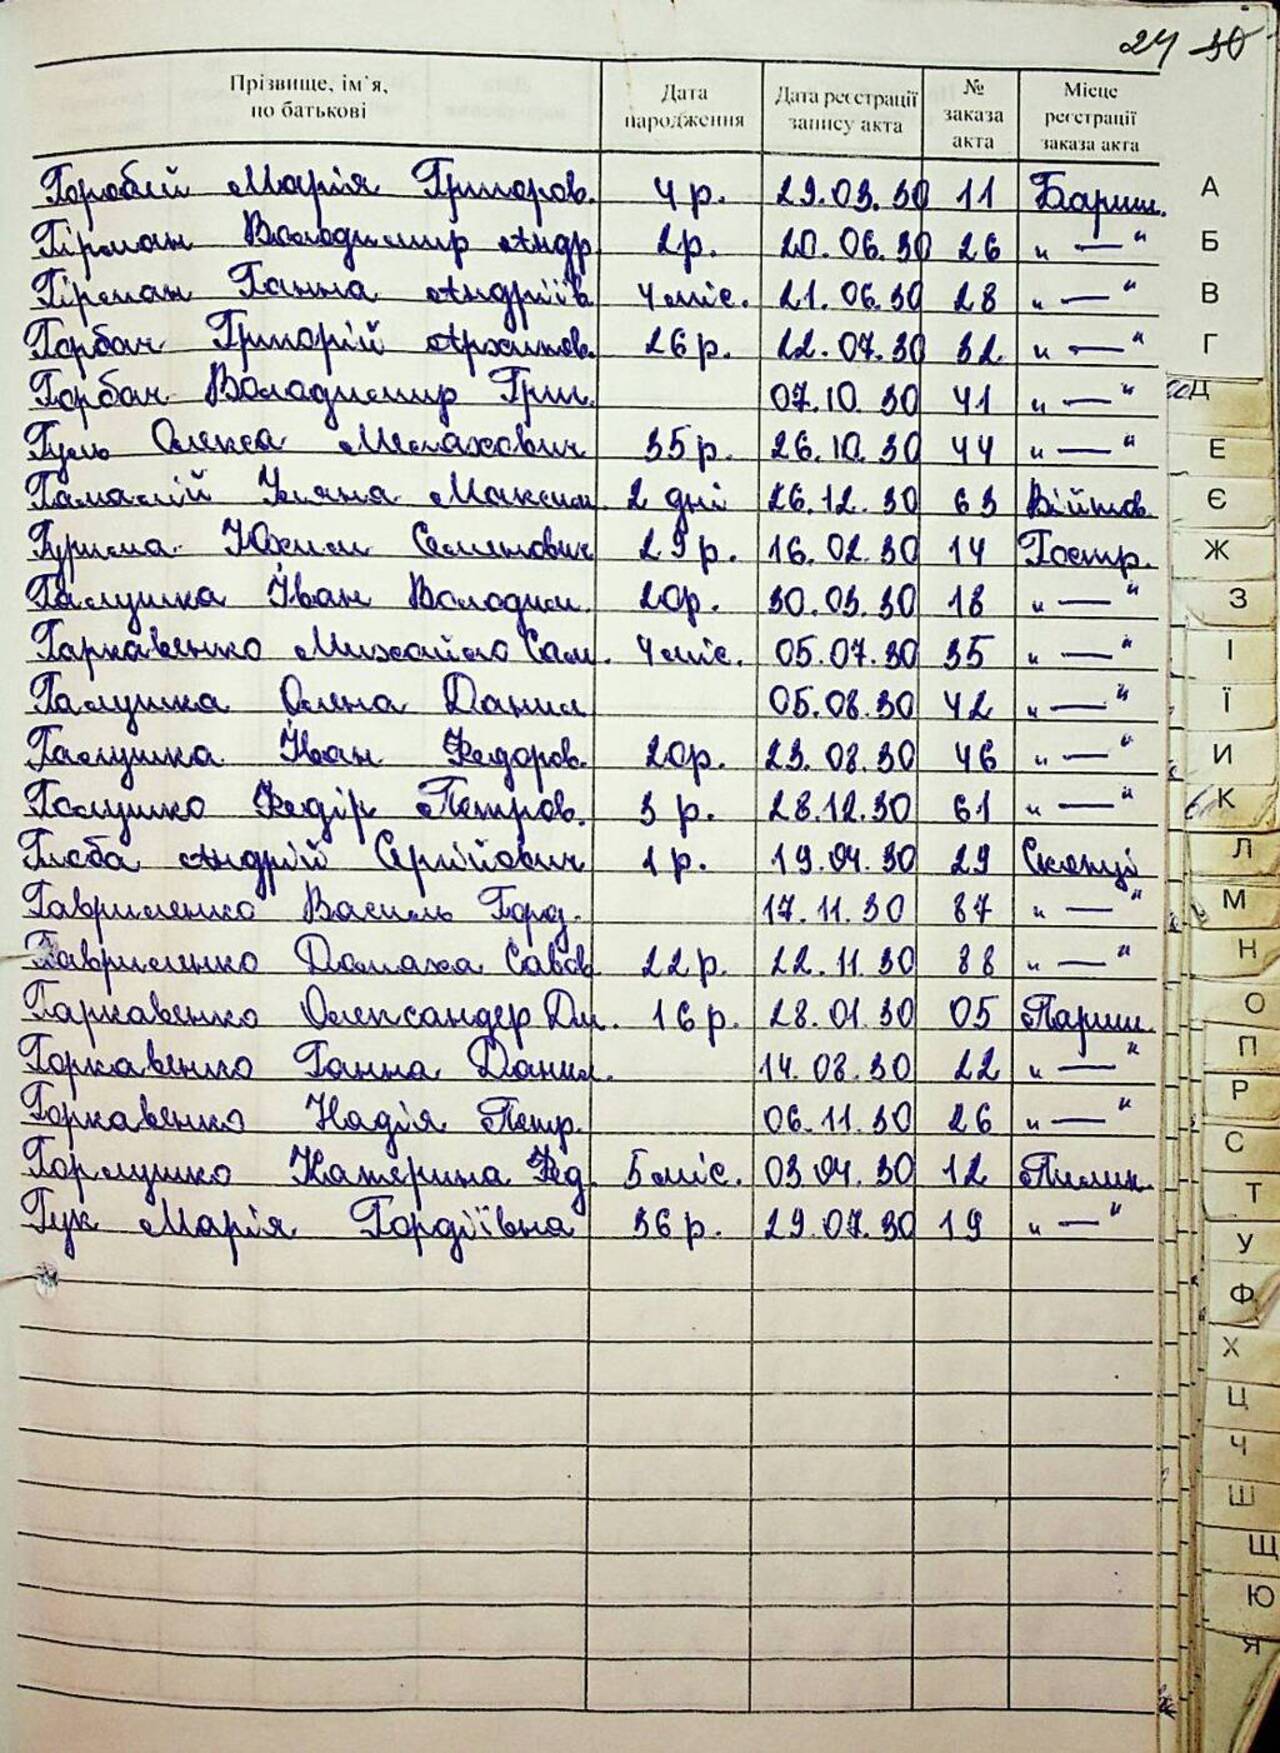 24 30
Прізвище, ім'я, по батькові Дата народження Дата реєстрації запису акта № заказа акта Місце реєстрації заказа акта
Горобій Марія Григоров. 4 р. 29.03.30 11 Бариш.
Гірман Володимир Андр 2р. 20.06.30 26 " — "
Гірман Ганна Андріїв 4 міс. 21.06.30 28 " — "
Горбач Григорій Архипов. 26 р. 22.07.30 32 " — "
Горбач Володимир Григ. 07.10.30 41 " — "
Гуль Олекса Малахович 35 р. 26.10.30 44 " — "
Гамалій Уляна Максим. 2 дні 26.12.30 63 Війтов.
Гурима Юхим Семенович 29 р. 16.02.30 14 Гостр.
Галушка Іван Володим. 20р. 30.03.30 18 " — "
Гаркавенко Михайло Сам. 4 міс. 05.07.30 35 " — "
Галушка Олена Данил 05.08.30 42 " — "
Галушка Іван Федоров. 20р. 23.08.30 46 " — "
Галушко Федір Петров. 3 р. 28.12.30 61 " — "
Глоба Андрій Сергійович 1 р. 19.04.30 29 Скопці
Гавриленко Василь Горд. 17.11.30 87 " — "
Гавриленко Домаха Савов 22 р. 22.11.30 88 " — "
Гаркавенко Олександер Дм. 16 р. 28.01.30 05 Париш.
Горкавенко Ганна Данил. 14.08.30 22 " — "
Горкавенко Надія Петр. 06.11.30 26 " — "
Горлушко Катерина Фед. 5 міс. 03.04.30 12 Пилип.
Гук Марія Гордіївна 36 р. 29.07.30 19 " — "
А
Б
В
Г
Д
Е
Є
Ж
З
І
Ї
И
К
Л
М
Н
О
П
Р
С
Т
У
Ф
Х
Ц
Ч
Ш
Щ
Ю
Я